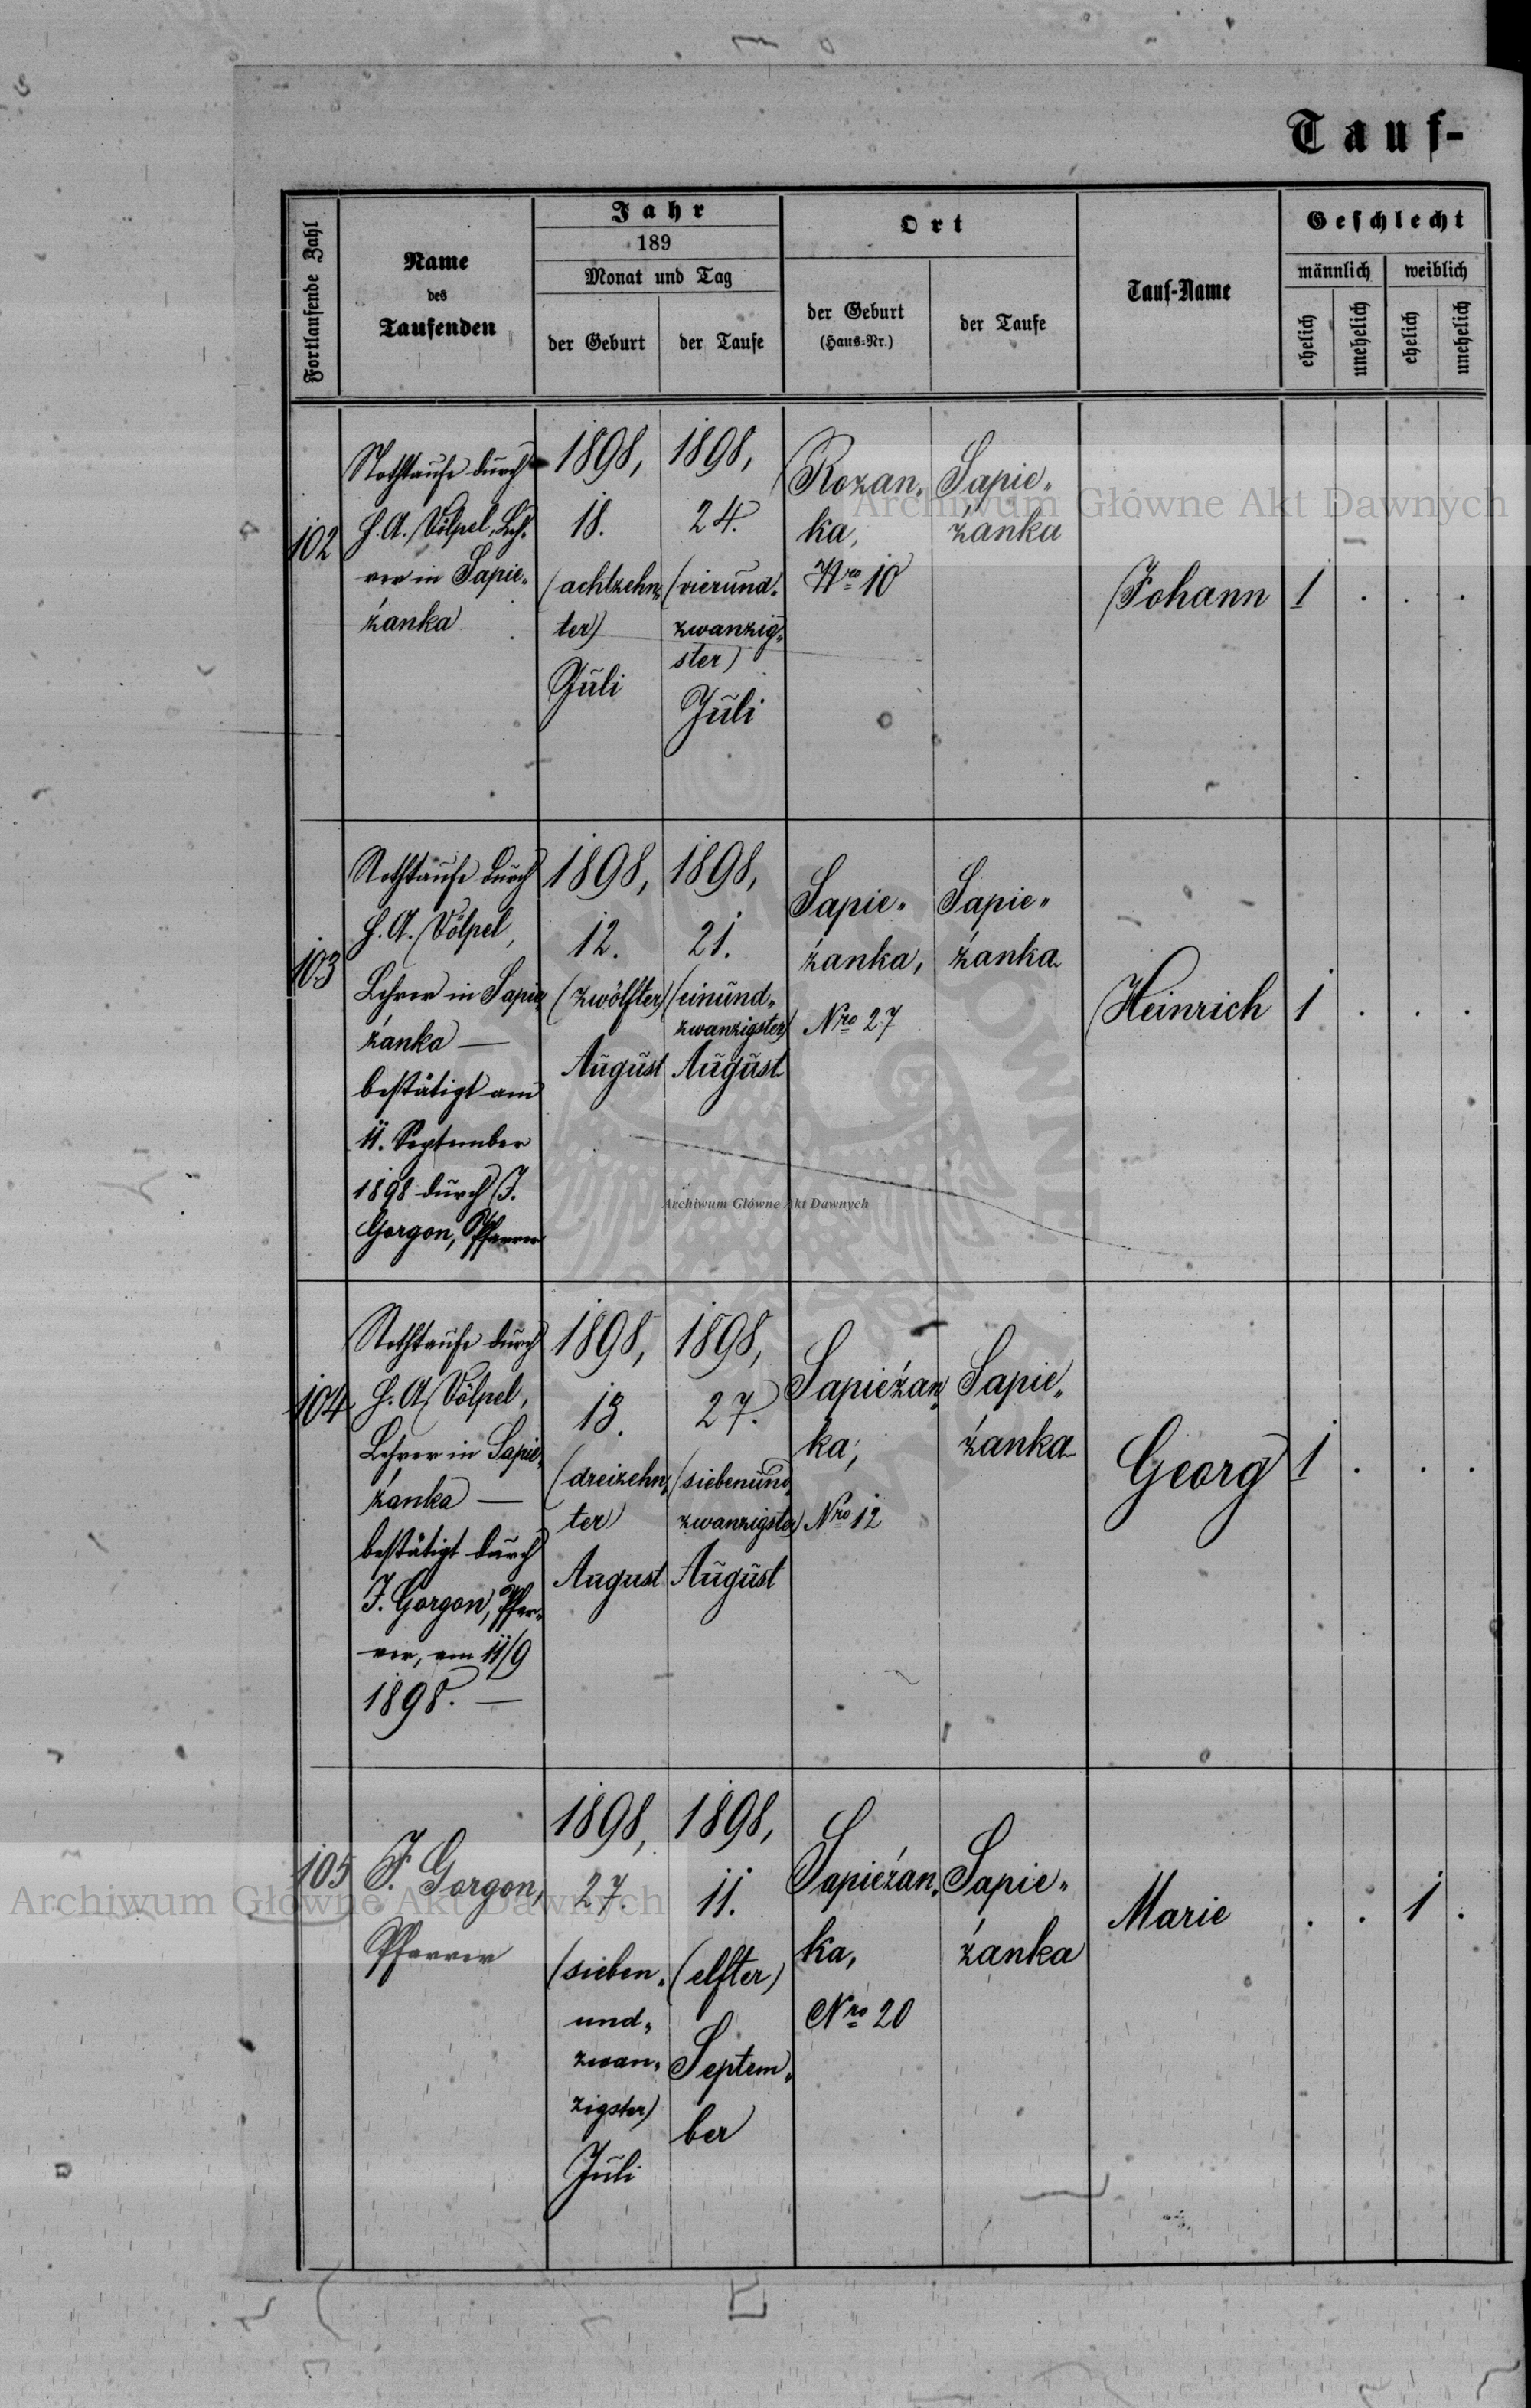 Tauf-
Fortlaufende Zahl
Name
des
Taufenden
Jahr
189
Monat und Tag
der Geburt
der Taufe
Ort
der Geburt
(Haus-Nr.)
der Taufe
Tauf-Name
Geschlecht
männlich
weiblich
ehelich
unehelich
ehelich
unehelich
102
Nothtaufe durch
H. A. Völpel, Leh-
rer in Sapie„
żanka
1898,
18.
(achtzehn„
ter)
Juli
1898,
24.
(vierund„
zwanzig„
ster)
Juli
Rozan„
ka,
Nro 10
Sapie„
żanka
Johann
1 . . .
103
Nothtaufe durch
H. A. Völpel,
Lehrer in Sapie„
żanka —
bestätigt am
11. September
1898 durch J.
Gorgon, Pfarrer
1898,
12.
(zwölfter)
August
1898,
21.
(einund„
zwanzigster)
August
Sapie„
żanka,
Nro 27
Sapie„
żanka
Heinrich
1 . . .
104
Nothtaufe durch
H. A. Völpel,
Lehrer in Sapie„
żanka —
bestätigt durch
J. Gorgon, Pfar„
rer, am 11/9
1898. —
1898,
13.
(dreizehn„
ter)
August
1898,
27.
(siebenund„
zwanzigster)
August
Sapieżan„
ka,
Nro 12
Sapie„
żanka
Georg
1 . . .
105
J. Gorgon,
Pfarrer
1898,
27.
(sieben„
und„
zwan„
zigster)
Juli
1898,
11.
(elfter)
Septem„
ber
Sapieżan„
ka,
Nro 20
Sapie„
żanka
Marie
. . 1 .
Archiwum Główne Akt Dawnych
Archiwum Główne Akt Dawnych
Archiwum Główne Akt Dawnych